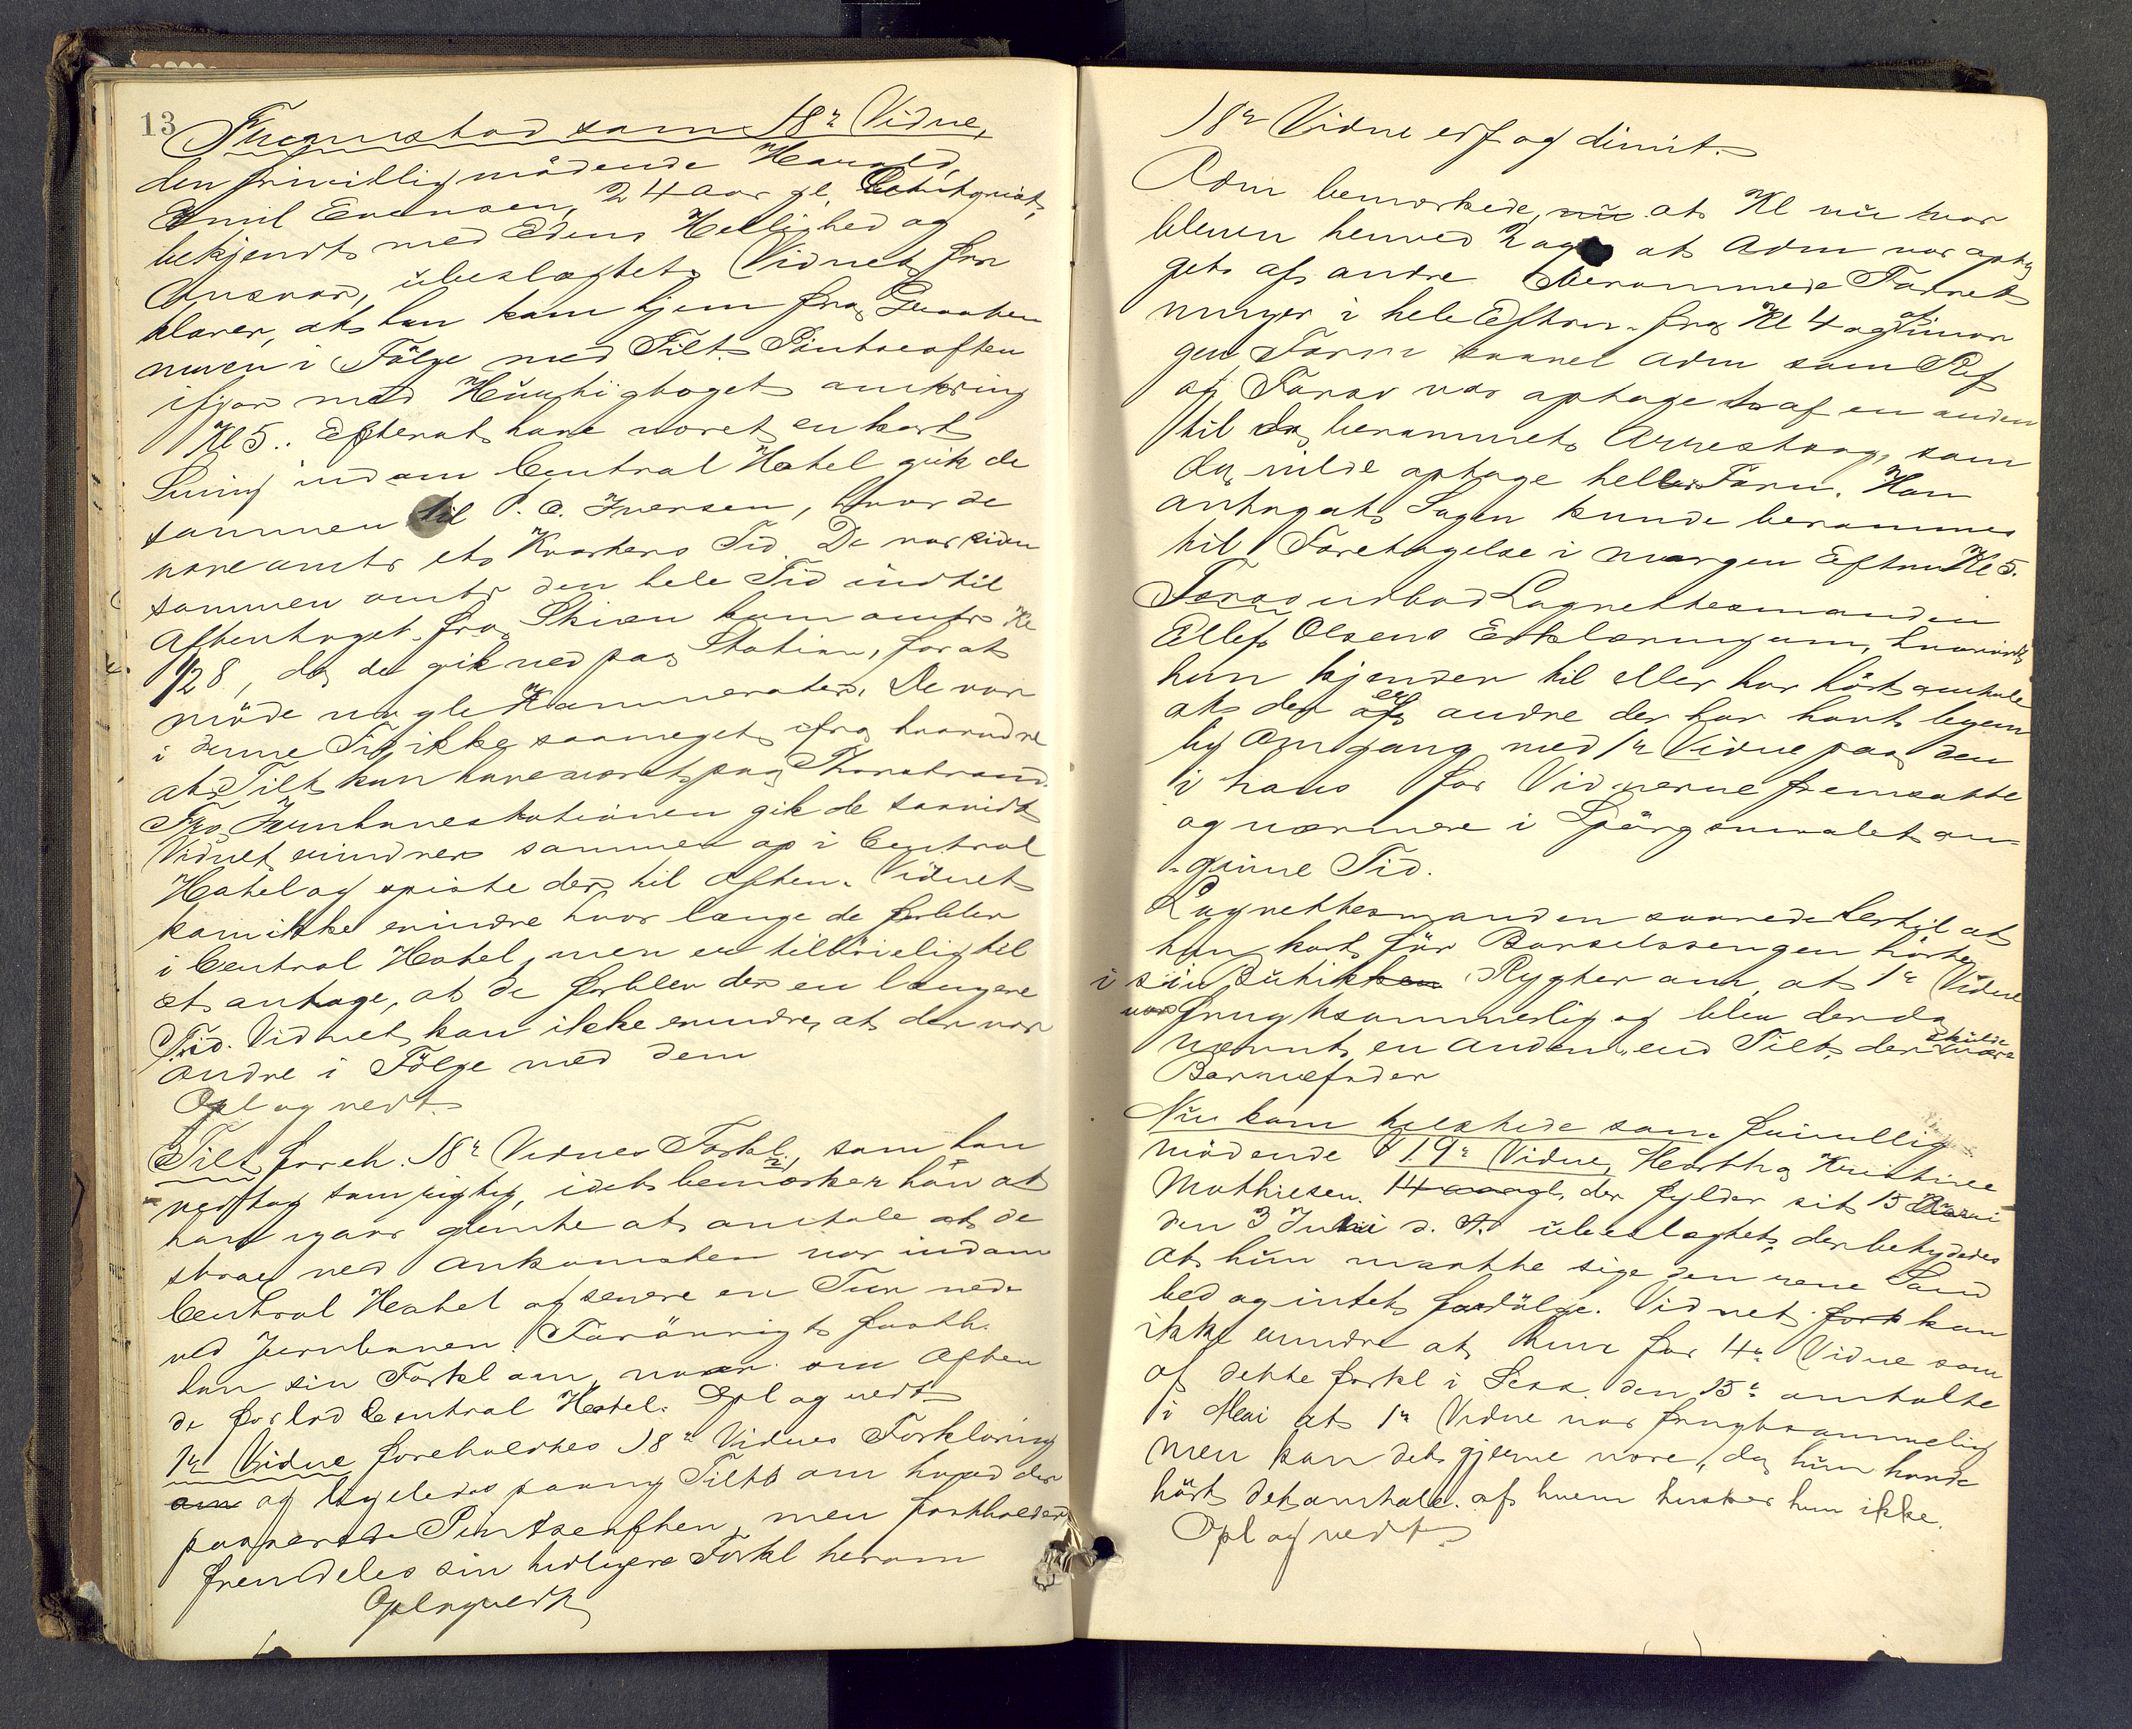 13
Fremstod som 18de Vidne,
den frivillig mødende Harald
Emil Evensen, 24 aar gl,
bekjendt med Edens Hellighed og
Ansvar, ubeslægtet. Vidnet for
klarer, at han kom hjem fra
i Følge med Tilt. Pintseaften
ifjor med Hurtigtoget omkring
Kl 5. Efterat have været en kort
Sving indom Central Hotel gik de
sammen til P. A. Iversen, hvor de
vare omtr et Kvarters Tid. De var siden
sammen omtr den hele Tid indtil
Aftentoget fra Skien kom omtr Kl
1/2 8, da de gik ned paa Station, for at
møde nogle Kammerater. De var
i denne Tid ikke saameget ifra hverandre
at Tilt kan have været paa
Fra Jernbanestationen gik de saavidt
Vidnet erindrer sammen op i Central
Hotel og spiste der til Aften. Vidnet
kan ikke erindre hvor længe de forblev
i Central Hotel, men er tilbøielig til
at antage, at de forblev der en længere
Tid. Vidnet kan ikke erindre, at der var
andre i Følge med dem
Opl og vedt.
Tilt foreh. 18de Vidnes Forkl., som han
vedtog som rigtig, idet bemærker han at
han igaar glemte at omtale at de
strax ved Ankomsten var indom
Central Hotel og senere en Tur nede
ved Jernbanen. Forøvrigt fasth.
han sin Forkl om, naar om Aften
de forlod Central Hotel. Opl og vedt
1ste Vidne foreholdtes 18de Vidnes Forklaring
om og ligeledes paany Tilts om hvad der
passerede Pintseaften, men fastholder
fremdeles sin tidligere Forkl herom
Opl og vedt
18de Vidne erf og dimit.
Adm bemærkede, nu at Kl nu var
bleven henved 2 og at Adm var opta
get af andre Berammede Forret
ninger i hele Efterm. fra Kl 4 og imor
gen Form saavel Adm som Ref
og Forsv var optaget af en anden
til da berammet Arrestsag, som
da vilde optage hele Form. Han
antog at Sagen kunde berammes
til Foretagelse i morgen Efterm Kl 5.
Forsv udbad Lagrettesmanden
Ellef Olsens Erklæring om, hvorvidt
han kjender til eller har hørt omtale
at der er andre der har havt legem
lig Omgang med 1ste Vidne paa den
i hans for Vidnerne fremsatte
og nærmere i Spørgsmaalet an-
givne Tid.
Lagrettesmanden svarede hertil at
han kort før Barselssengen hørte
i sin Butik Rygter om, at 1ste Vidne
var frugtsommelig og blev der da
nævnt en anden, end Tilt, der skulde være
Barnefader
Nu kom tilstede som frivillig
mødende 19de Vidne, Hertha Kristine
Mathiesen. 14 aar gl, der fylder sit 15 Aar
den 3 Juni d. A. ubeslægtet, der betydedes
at hun maatte sige den rene Sand
hed og intet fordølge. Vidnet fork kan
ikke erindre at hun for 14de Vidne som
af dette forkl i Sess. den 15de omtalte
i Mai at 1ste Vidne var frugtsommelig
men kan det gjerne være, da hun havde
hørt det omtale. af hvem husker hun ikke.
Opl og vedt